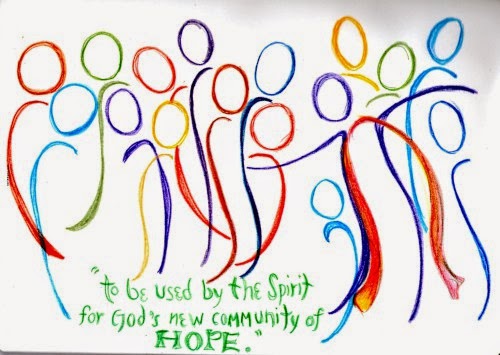 "to be used by the Spirit
for God's new community of
HOPE."